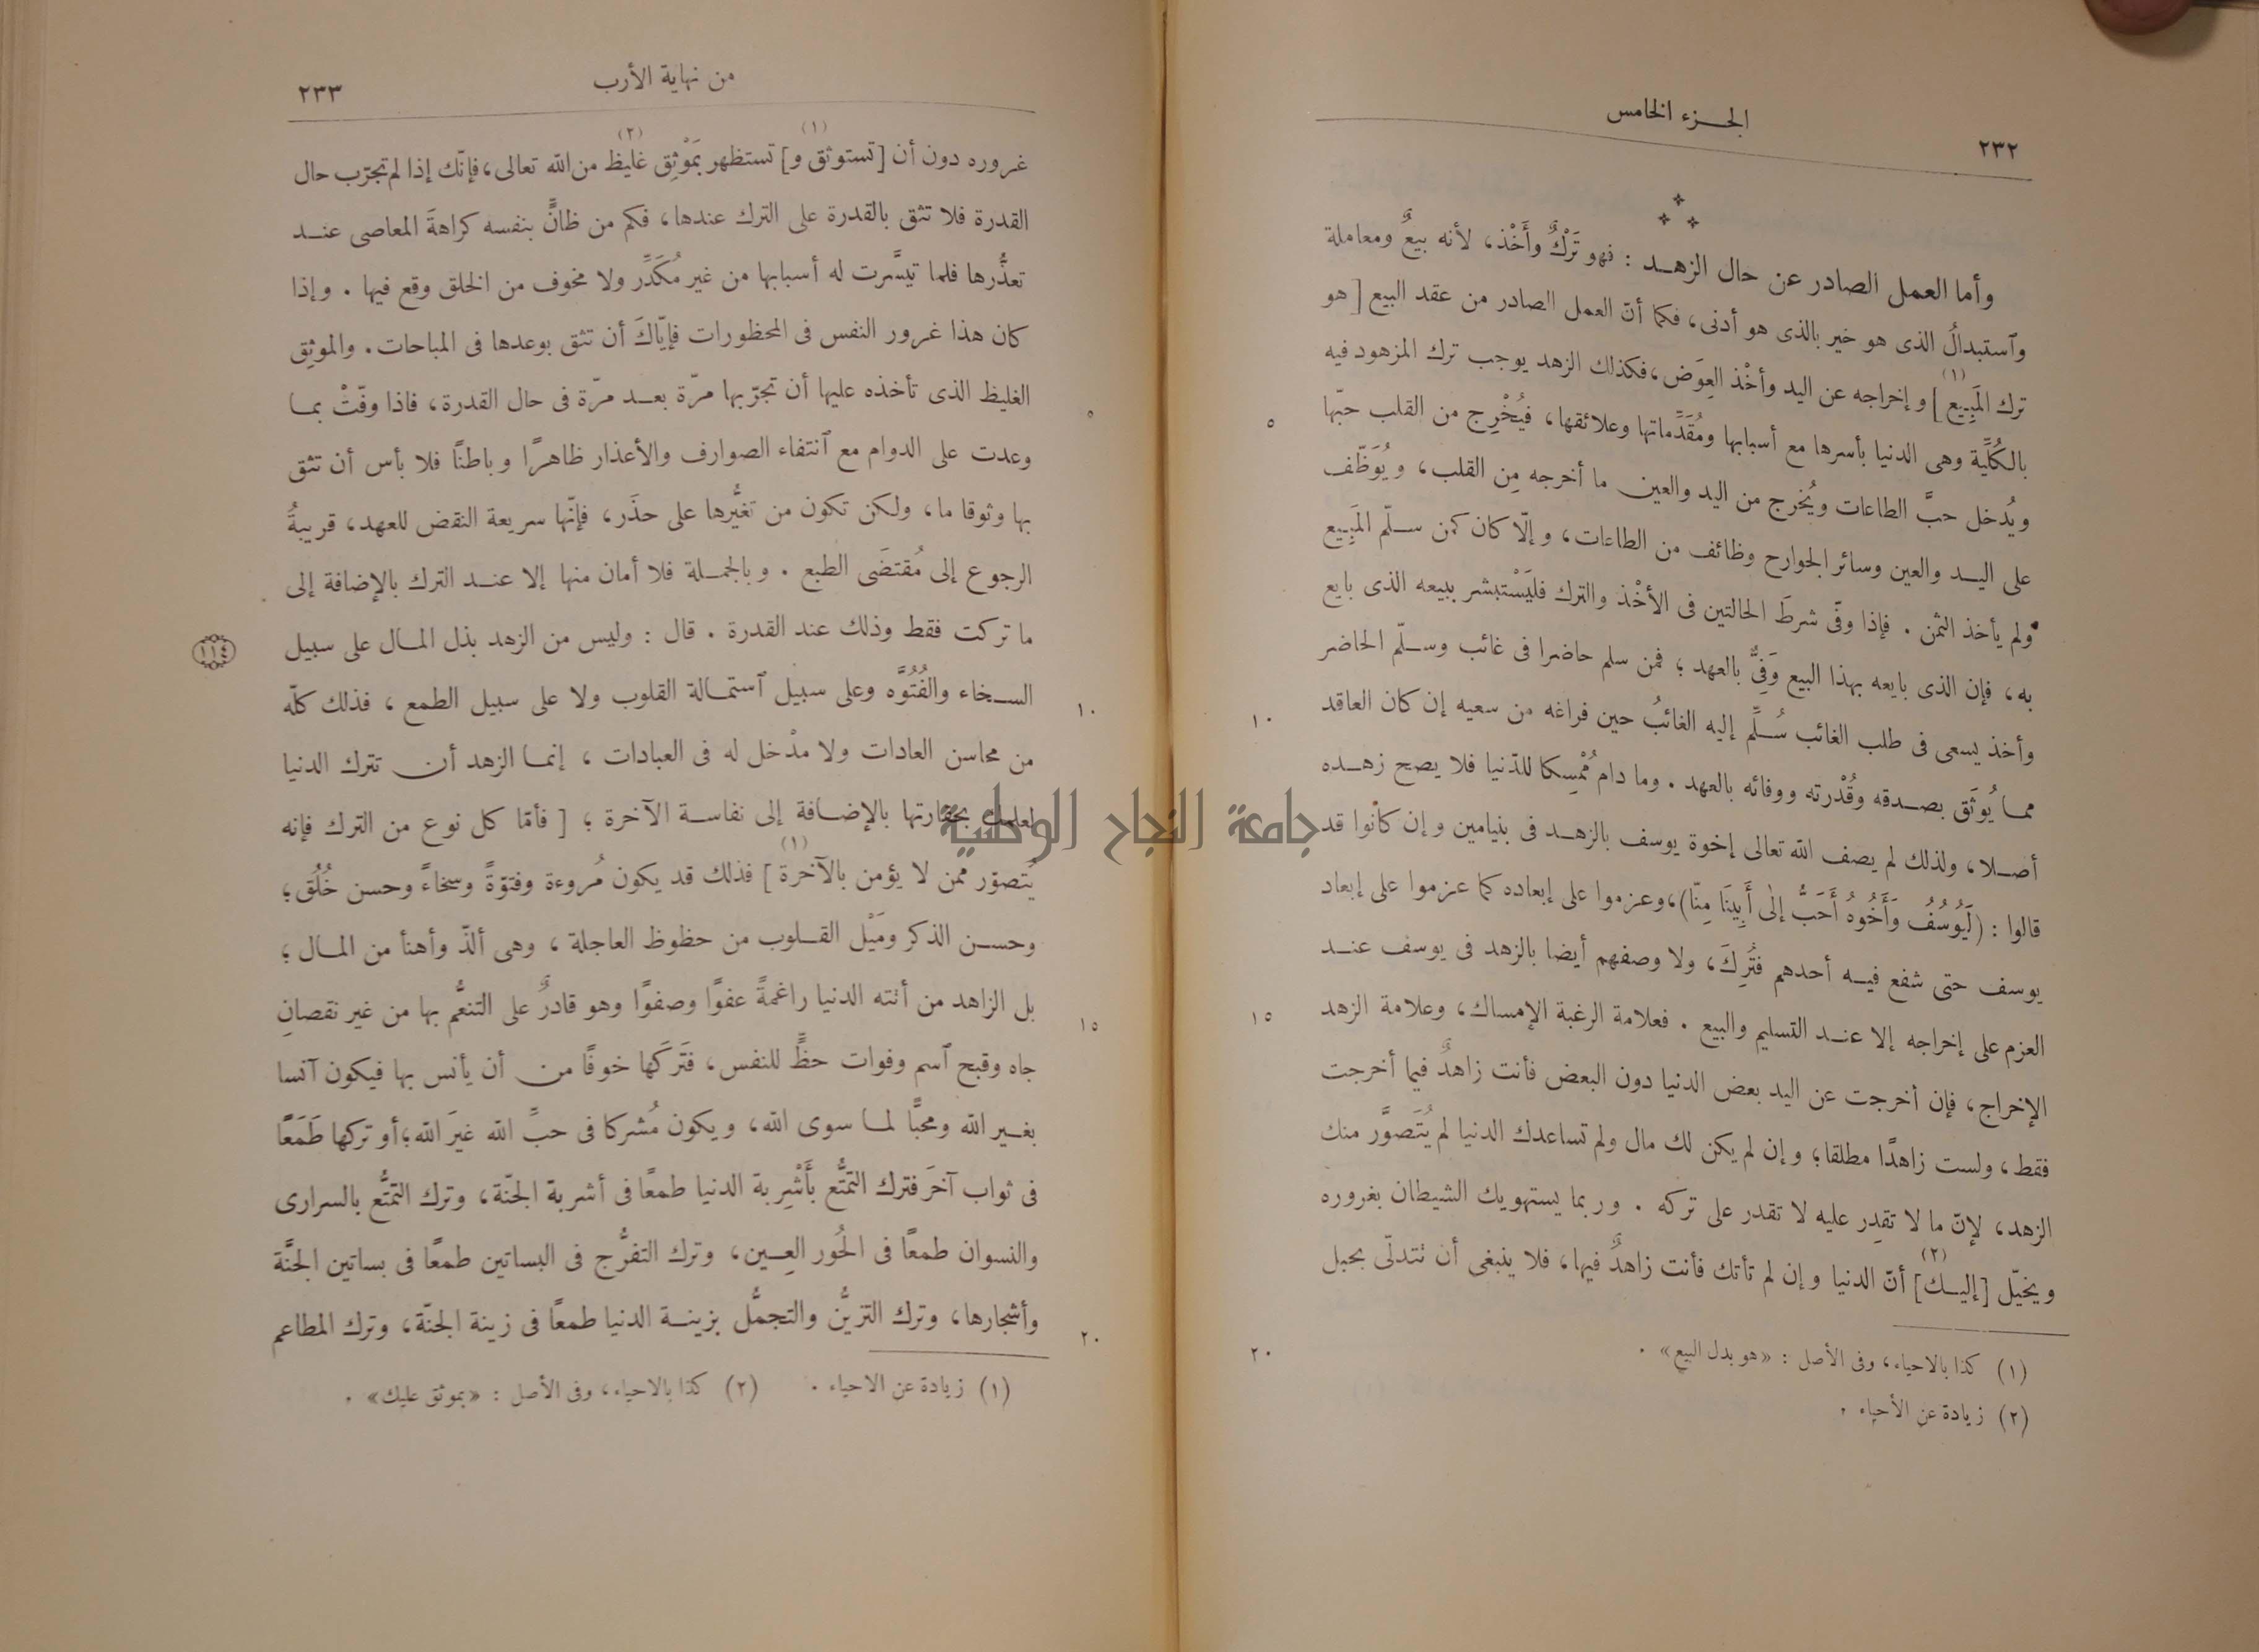 ٢٣٢
الجزء الخامس
وأما العمل الصادر عن حال الزهد : فهو تَرْكٌ وأَخْذ، لأنه بيعٌ ومعاملة
وٱستبدالُ الذى هو خير بالذى هو أدنى، فكما أنّ العمل الصادر من عقد البيع [هو
ترك المَبِيع](١) وإخراجه عن اليد وأخْذ العِوَض، فكذلك الزهد يوجب ترك المزهود فيه
بالكُلّيّة وهى الدنيا بأسرها مع أسبابها ومُقَدِّماتها وعلائقها، فيُخْرِج من القلب حبّها ٥
ويُدخل حبَّ الطاعات ويُخرج من اليد والعين ما أخرجه مِن القلب، ويُوَظّف
على اليد والعين وسائر الجوارح وظائف من الطاعات، وإلّا كان كمن سلّم المَبِيع
ولم يأخذ الثمن . فإذا وفّى شرطَ الحالتين فى الأخْذ والترك فليَسْتبشر ببيعه الذى بايع
به، فإن الذى بايعه بهذا البيع وَفِىٌّ بالعهد ؛ فمن سلم حاضرا فى غائب وسلّم الحاضر
وأخذ يسعى فى طلب الغائب سُلِّم إليه الغائبُ حين فراغه من سعيه إن كان العاقد ١٠
مما يُوثَق بصدقه وقُدْرته ووفائه بالعهد . وما دام مُمْسِكا للدّنيا فلا يصح زهده
أصلا، ولذلك لم يصف الله تعالى إخوة يوسف بالزهد فى بنيامين وإن كانوا قد
قالوا : (لَيُوسُفُ وَأَخُوهُ أَحَبُّ إلى أَبِينَا مِنّا)، وعزموا على إبعاده كما عزموا على إبعاد
يوسف حتى شفع فيه أحدهم فتُرِكَ، ولا وصفهم أيضا بالزهد فى يوسف عند
العزم على إخراجه إلا عند التسليم والبيع . فعلامة الرغبة الإمساك، وعلامة الزهد ١٥
الإخراج، فإن أخرجت عن اليد بعض الدنيا دون البعض فأنت زاهدٌ فيما أخرجت
فقط، ولست زاهدًا مطلقا؛ وإن لم يكن لك مال ولم تساعدك الدنيا لم يُتَصوَّر منك
الزهد، لإنّ ما لا تقدِر عليه لا تقدر على تركه . وربما يستهويك الشيطان بغروره
ويخيّل [إليك](٢) أنّ الدنيا وإن لم تأتك فأنت زاهدٌ فيها، فلا ينبغى أن تتدلّى بحبل
٢٠
(١) كذا بالاحياء، وفى الأصل : «هو بدل البيع» .
(٢) زيادة عن الأحياء .
من نهاية الأرب
٢٣٣
غروره دون أن [تستوثق و](١) تستظهر بمَوْثِق غليظ(٢) من الله تعالى، فإنّك إذا لم تجرّب حال
القدرة فلا تثق بالقدرة على الترك عندها، فكم من ظانٍّ بنفسه كراهةَ المعاصى عند
تعذُّرها فلما تيسَّرت له أسبابها من غير مُكَدِّر ولا مخوف من الخلق وقع فيها . وإذا
كان هذا غرور النفس فى المحظورات فإيّاكَ أن تثق بوعدها فى المباحات. والموثِق
الغليظ الذى تأخذه عليها أن تجرّبها مرّة بعد مرّة فى حال القدرة، فاذا وفّتْ بما ٥
وعدت على الدوام مع ٱنتفاء الصوارف والأعذار ظاهرًا وباطنًا فلا بأس أن تثق
بها وثوقا ما، ولكن تكون من تغيُّرها على حذَر، فإنّها سريعة النقض للعهد، قريبةُ
الرجوع إلى مُقتضَى الطبع . وبالجملة فلا أمان منها إلا عند الترك بالإضافة إلى
ما تركت فقط وذلك عند القدرة . قال : وليس من الزهد بذل المال على سبيل ١١٤
السخاء والفُتُوَّه وعلى سبيل ٱستمالة القلوب ولا على سبيل الطمع ، فذلك كلّه ١٠
من محاسن العادات ولا مدْخل له فى العبادات ، إنما الزهد أن تترك الدنيا
لعلمك بحقارتها بالإضافة إلى نفاسة الآخرة ؛ [فأمّا كل نوع من الترك فإنه
يُتصوّر ممن لا يؤمن بالآخرة](١) فذلك قد يكون مُروءة وفتوّةً وسخاءً وحسن خُلُق؛
وحسن الذكر ومَيْل القلوب من حظوظ العاجلة ، وهى ألذّ وأهنأ من المال ؛
بل الزاهد من أتته الدنيا راغمةً عفوًا وصفوًا وهو قادرٌ على التنعُّم بها من غير نقصانِ ١٥
جاه وقبح ٱسم وفوات حظٍّ للنفس، فتَركَها خوفًا من أن يأنس بها فيكون آنسا
بغير الله ومحبًّا لما سوى الله، ويكون مُشركا فى حبِّ الله غيرَ الله؛ أو تركها طَمَعًا
فى ثواب آخَر فترك التمتُّع بأَشْرِبة الدنيا طمعًا فى أشربة الجنّة، وترك التمتُّع بالسرارى
والنسوان طمعًا فى الحُور العِين، وترك التفرُّج فى البساتين طمعًا فى بساتين الجنَّة
وأشجارها، وترك التزيُّن والتجمُّل بزينة الدنيا طمعًا فى زينة الجنّة، وترك المطاعم ٢٠
(١) زيادة عن الاحياء . (٢) كذا بالاحياء، وفى الأصل : «بموثق عليك» .
جامعة النجاح الوطنية